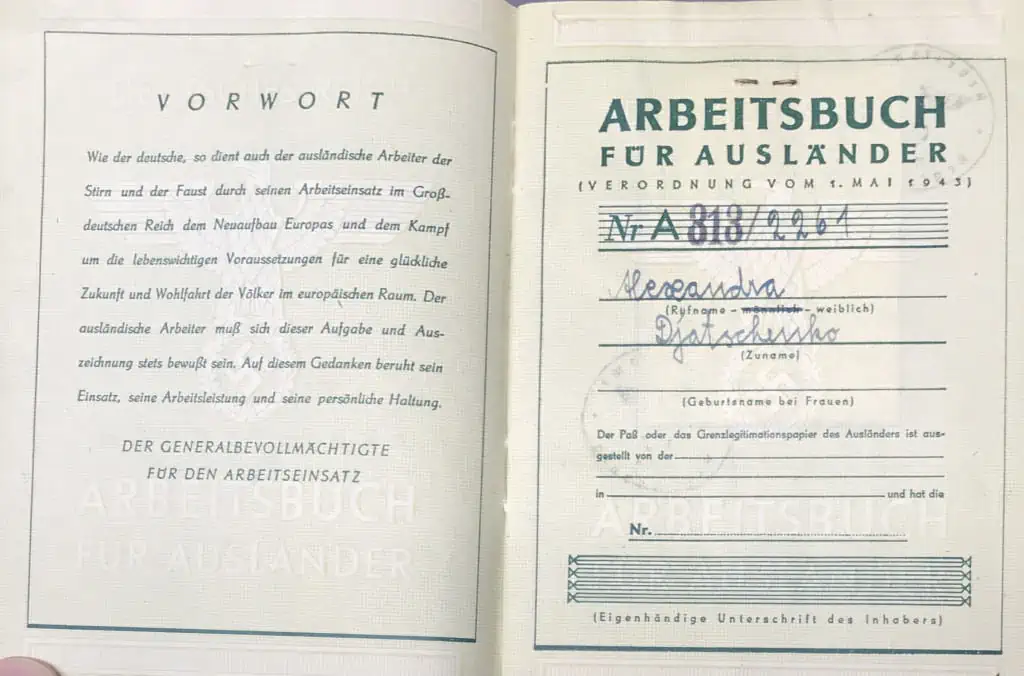 VORWORT
Wie der deutsche, so dient auch der ausländische Arbeiter der
Stirn und der Faust durch seinen Arbeitseinsatz im Groß-
deutschen Reich dem Neuaufbau Europas und dem Kampf
um die lebenswichtigen Voraussetzungen für eine glückliche
Zukunft und Wohlfahrt der Völker im europäischen Raum. Der
ausländische Arbeiter muß sich dieser Aufgabe und Aus-
zeichnung stets bewußt sein. Auf diesem Gedanken beruht sein
Einsatz, seine Arbeitsleistung und seine persönliche Haltung.
DER GENERALBEVOLLMÄCHTIGTE
FÜR DEN ARBEITSEINSATZ
ARBEITSBUCH
FÜR AUSLÄNDER
ARBEITSBUCH
FÜR AUSLÄNDER
(VERORDNUNG VOM 1. MAI 1943)
Nr A 313/2261
Alexandra
(Rufname - männlich - weiblich)
Djatschenko
(Zuname)
(Geburtsname bei Frauen)
Der Paß oder das Grenzlegitimationspapier des Ausländers ist aus-
gestellt von der
in und hat die
ARBEITSBUCH
Nr.
FÜR AUSLÄNDER
(Eigenhändige Unterschrift des Inhabers)